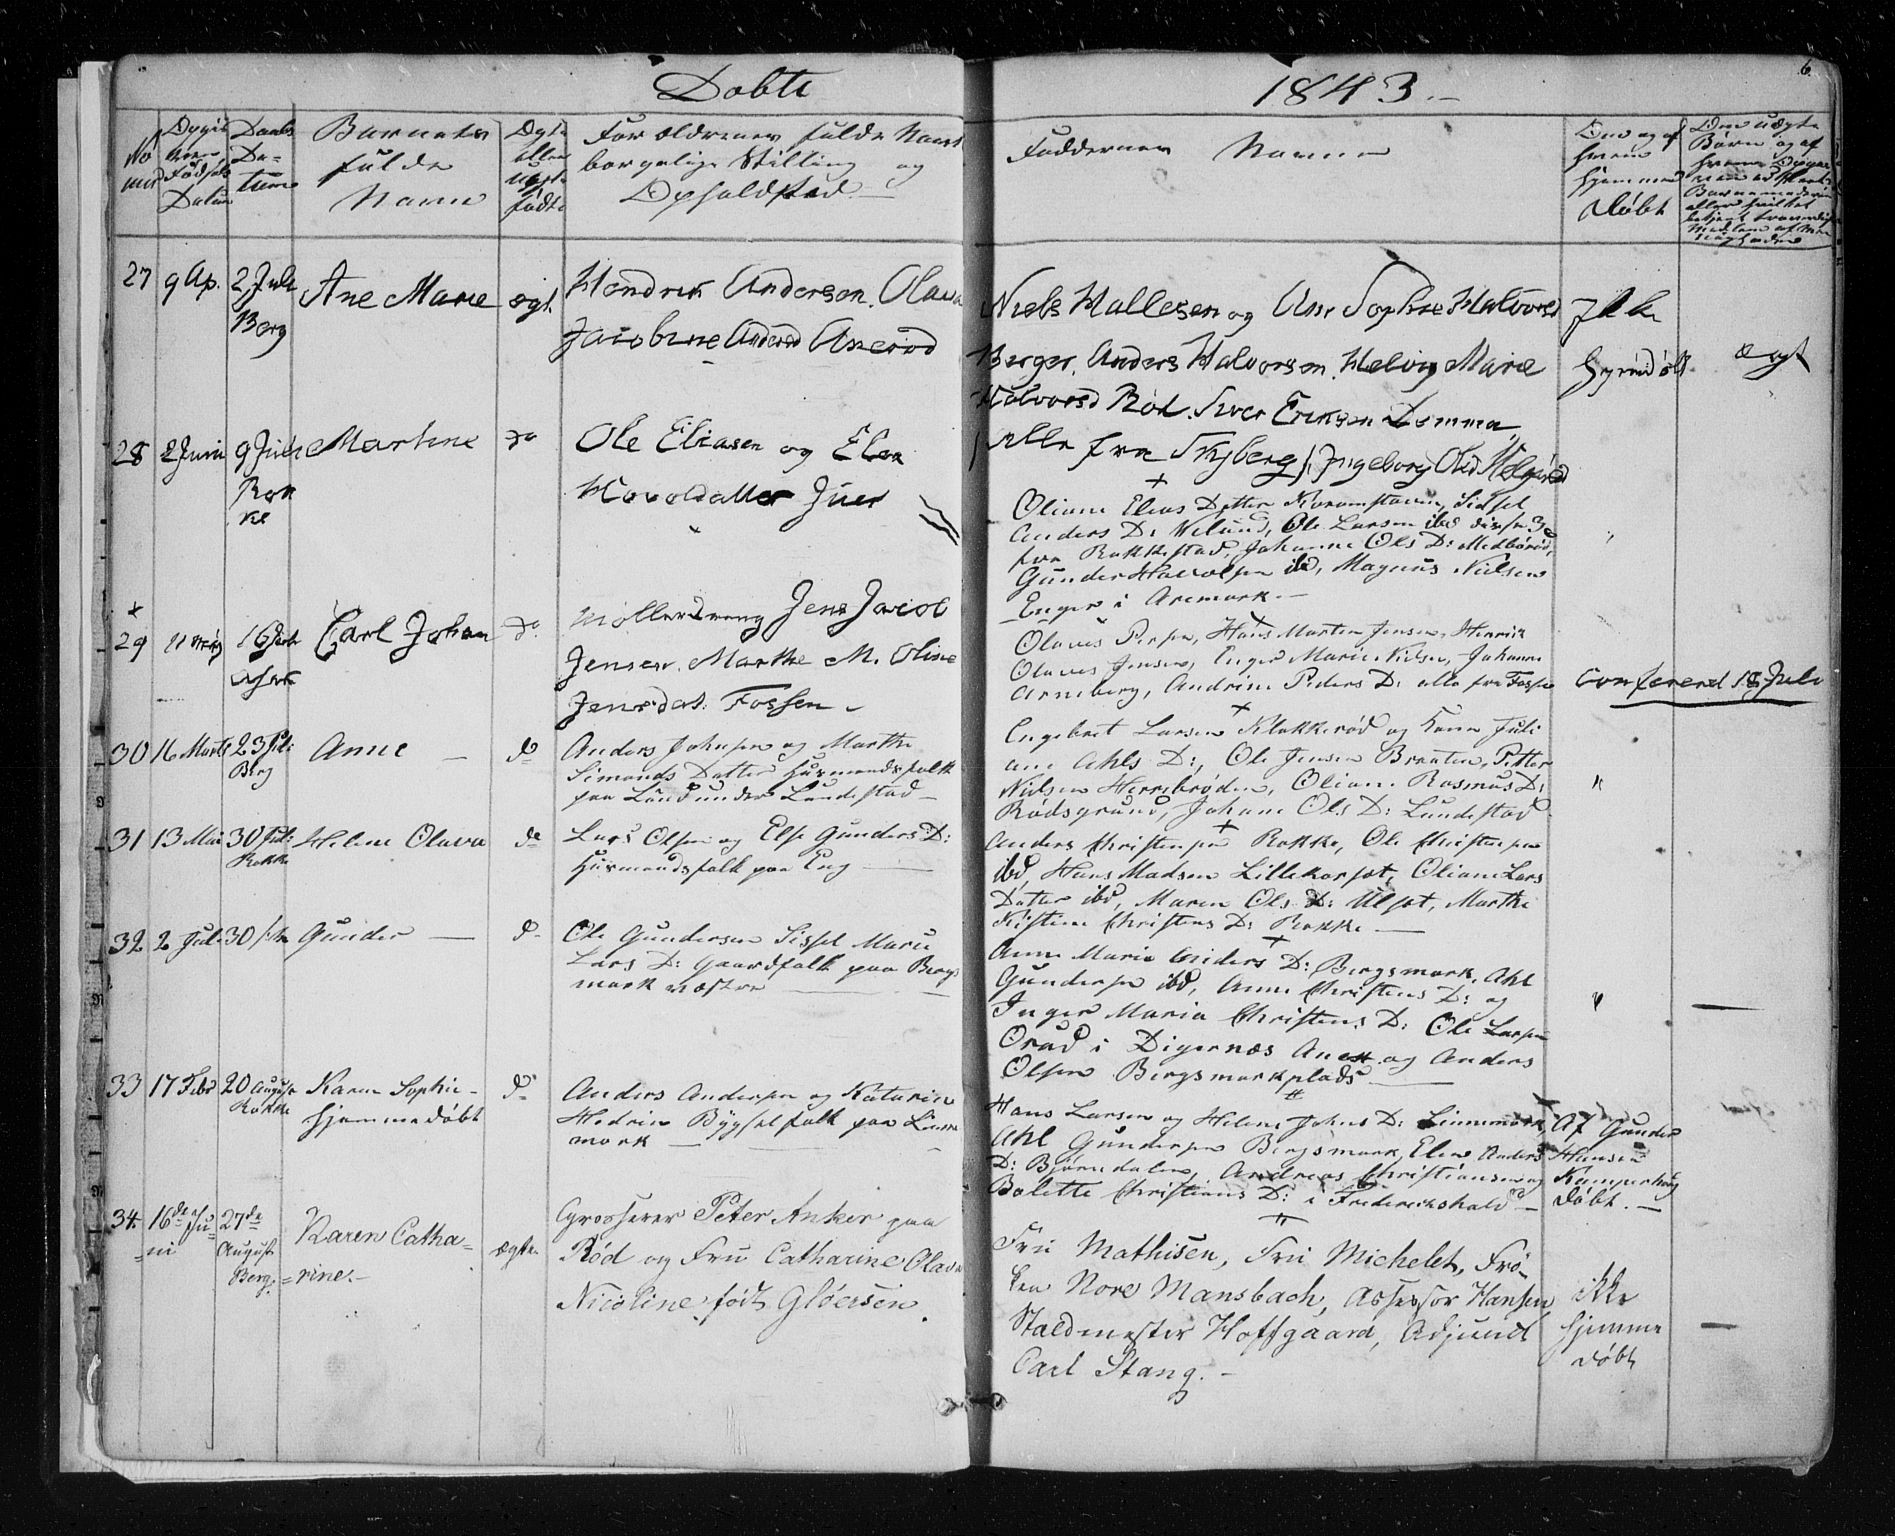 Døbte
1843.
6
No
Opgiven Fødsels Datum
Daabs Datum
Barnets
fulde
Navn
Ægte
eller
uægte
født
Forældrenes fulde Navn
borgerlige Stilling og
Opholdssted
Faddernes Navne
Om og af
hvem
hjemme
døbt
27 9 Ap. 2 Juli
Berg
Ane Marie ægt.
Hendrik Anderson. Olava
Jacobine Andersd
Niels Hallesen og Ane Sophie Halvorsd
Berger. Anders Halvorsen. Helvig Marie
Halvorsd Rød. Siver Eriksen
alle fra Skjberg, Ingeborg Olsd
Ikke
hjemdøbt
ægt
28 2 Juni 9 Juli
Rok
ke
Martine do
Ole Eliasen og Elen
Havoldatter
Oliane Elias Datter Sidsel
Anders D: Ole Larsen ibd disse 3
fra Rakkestad, Johanne Ols D:
Gunder ibd, Magnus Nielsen
Enger i Aremark.
29 16 Juli
Carl Johan do
Møllersvend Jens Jacob
Jensen. Marthe M. Oline
Jensdat. Fossen
Olaves Hans Martin Jensen, Henrik
Olaves Jensen, Inger Marie Nielsen, Johanne
Arneberg, Andrine Peders D: alle fra Fossen
Confereret 18 Juli
30 16 Marts 23 Juli
Berg
Anne do
Anders Johnsen og Marthe
Simonds Datter Husmandsfolk
paa Lund under Lundestad
Engebret Larsen Klokkerød og Karen Juli
ane Ahls D:, Ole Jensen Braaten, Petter
Nielsen Herrebrøden, Oliane Rasmus D:
Rødsgrund, Johane Ols D: Lundestad
31 13 Mai 30 Juli
Rokke
Helene Olava do
Lars Olsen og Else Gunders D:
Husmandsfolk paa Eng
Anders Christensen Rokke, Ole Christensen
ibd, Hans Madsen Lillekorset, Oliane Lars
Datter ibd, Maren Ols D: Ulset, Marthe
Kistine Christens D: Rokke
32 2 Juli 30
Gunder do
Ole Gundersen Sissel Marie
Lars D: Gaardfolk paa Bergs
mark vestre
Anne Maria Anders D: Bergsmark, Ahl
Gundersen ibd, Anne Christens D: og
Inger Maria Christens D: Ole Larsen
i Digernæs og Anders
Olsen Bergsmarkplads
33 17 Febr 20 August
Rokke
Karen Sophie
hjemmedøbt do
Anders Andersen og Katarin
Hedrine Bygselfolk paa Linne
mark
Hans Larsen og Helene Johns D: Linnemark,
Ahl Gundersen Bergsmark, Elen Anders
D: Bjørnedalen, Andreas Christiansen og
Bolette Christians D: i Frederikshald
Af Gunder
Hansen
døbt.
34. 16de Ju
ni
27de
August
Berg.
Karen Catha=
=rine.
ægte.
Grosserer Peter Anker paa
Rød og Fru Catharine Olava
Nicoline født Gløersen.
Fru Mathisen, Fru Michelet, Frø=
ken Nore Mansbach, Assessor Hansen
Staldmester Hoffgaard, Adjunct
Carl Stang.
ikke
hjemme
døbt